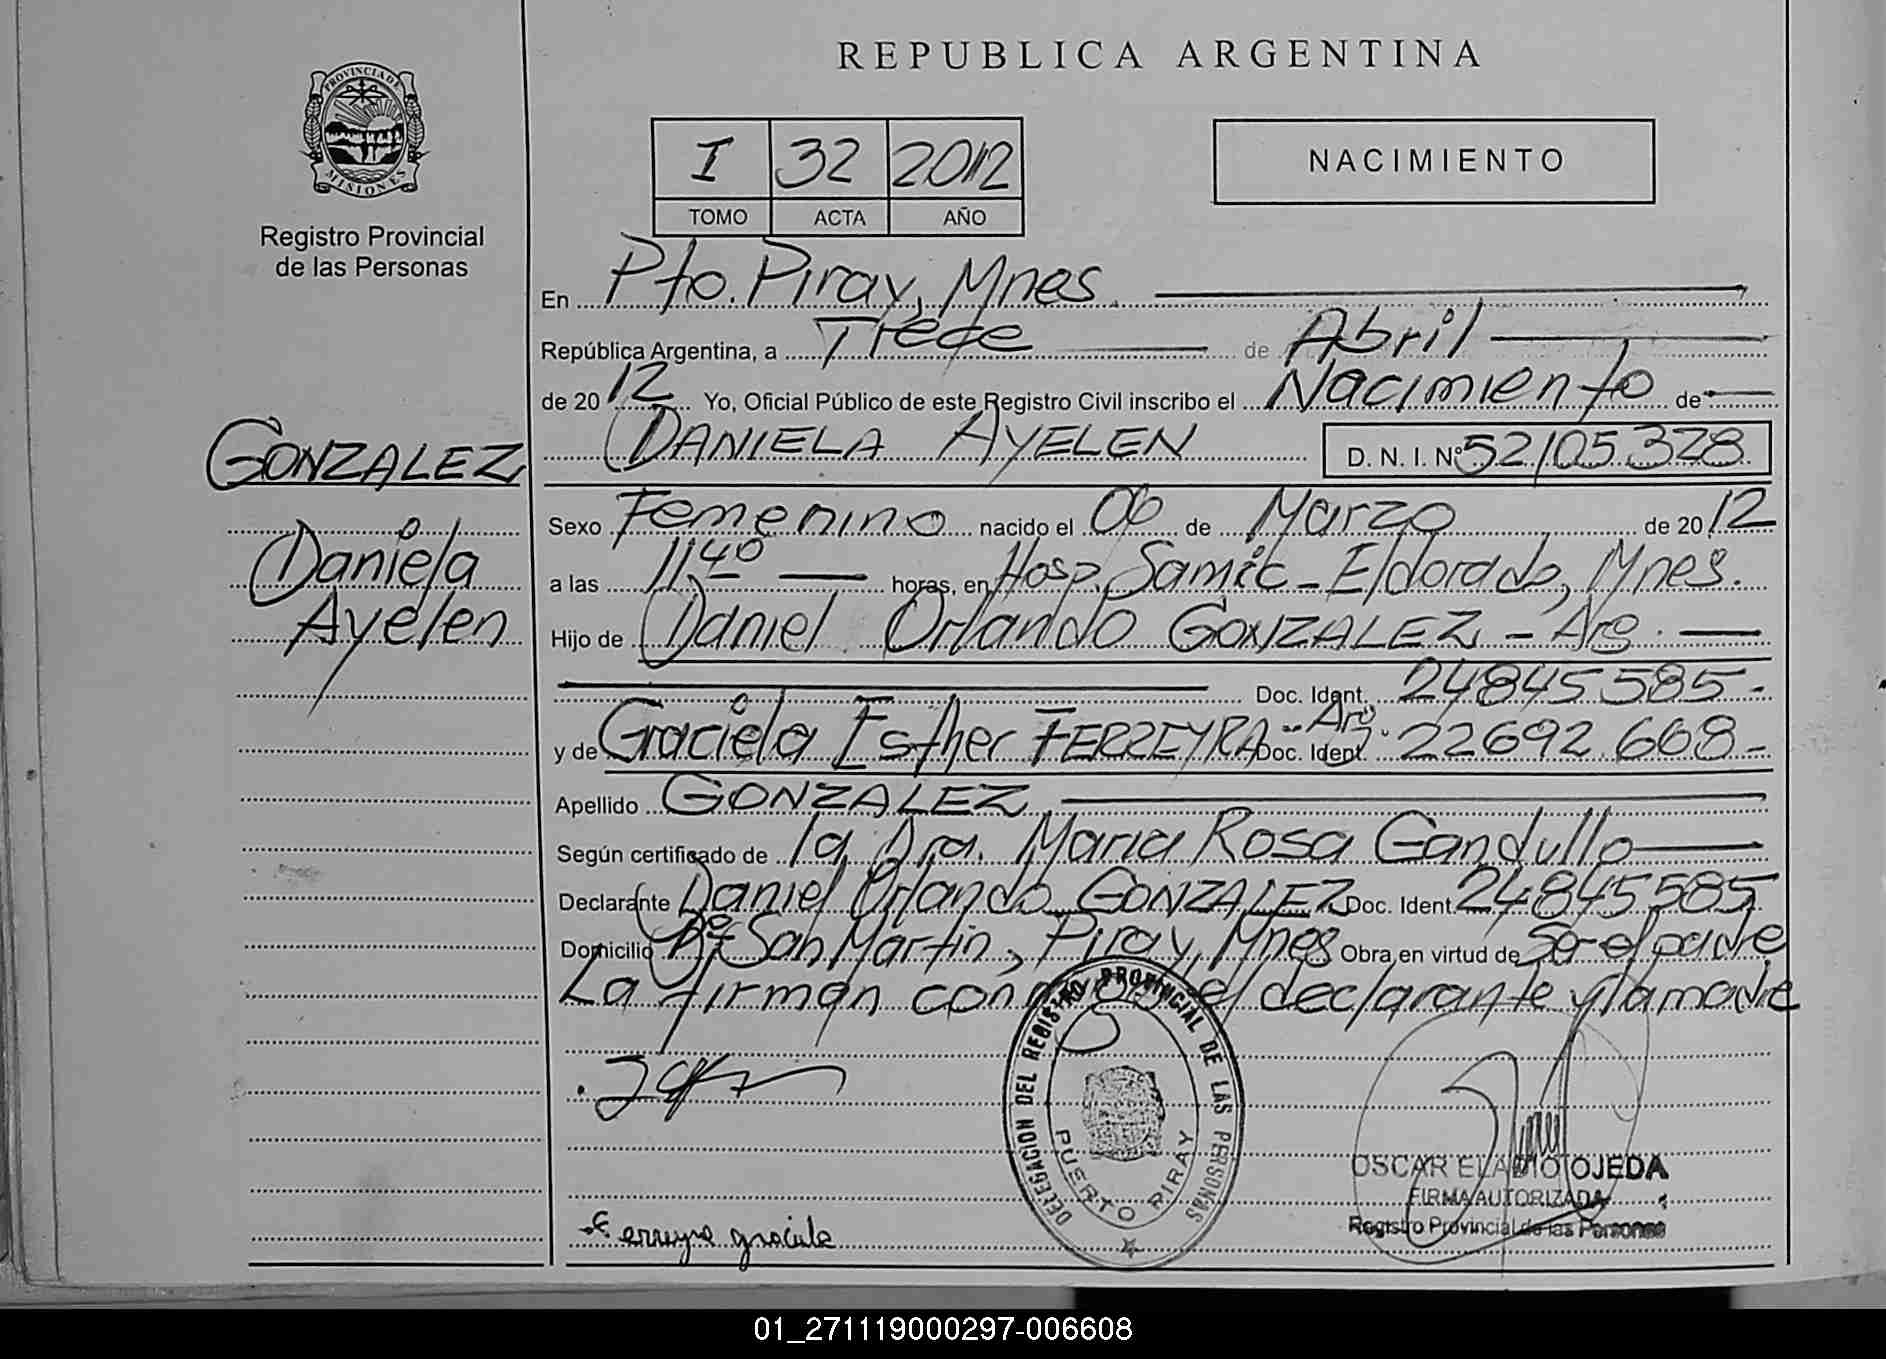 REPUBLICA ARGENTINA
PROVINCIA DE
MISIONES
Registro Provincial
de las Personas
I 32 2012
TOMO ACTA AÑO
NACIMIENTO
En Pto. Piray, Mnes.
República Argentina, a Trece de Abril
de 2012 Yo, Oficial Público de este Registro Civil inscribo el Nacimiento de
GONZALEZ
Daniela
Ayelen
DANIELA AYELEN D. N. I. Nº 52105.328
Sexo Femenino nacido el 06 de Marzo de 2012
a las 11,40 horas, en Hosp. Samic - Eldorado, Mnes.
Hijo de Daniel Orlando GONZALEZ - Arg.
Doc. Ident. 24845585-
y de Graciela Esther FERREYRA - Arg. Doc. Ident. 22692.668-
Apellido GONZALEZ
Según certificado de la Dra. Maria Rosa Gandullo
Declarante Daniel Orlando GONZALEZ Doc. Ident. 24845585
Domicilio Bº San Martin, Piray, Mnes Obra en virtud de So- el padre
La firman conmigo, el declarante y la madre
DELEGACION DEL REGISTRO PROVINCIAL DE LAS PERSONAS
PUERTO PIRAY
OSCAR ELADIO OJEDA
FIRMA AUTORIZADA
Registro Provincial de las Personas
Ferreyra graciela
01_271119000297-006608